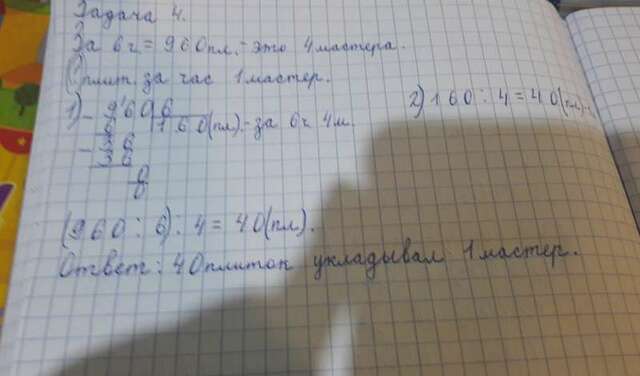 Задача 4.
За 6ч = 960пл. - это 4мастера.
Оплит. за час 1мастер.
1) - 960 6
6 160(пл). - за 6ч 4м.
- 36
36
0
0
2) 160 : 4 = 40(пл).
(960 : 6) : 4 = 40(пл).
Ответ: 40плиток укладывал 1мастер.